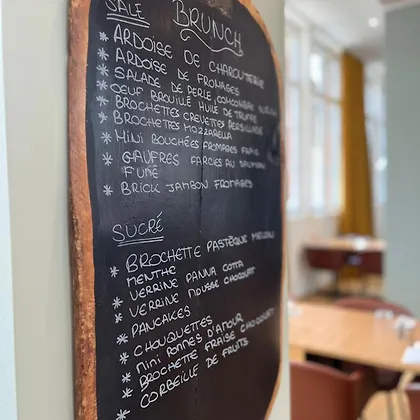 SALÉ
BRUNCH
* ARDOISE DE CHARCUTERIE
* ARDOISE DE FROMAGES
* SALADE DE PERLE, CONCOMBRE
* OEUF BROUILLÉ HUILE DE TRUFFE
* BROCHETTES CREVETTES PERSILLADE
* BROCHETTES MOZZARELLA
* MINI BOUCHÉES FROMAGES FRAIS
* GAUFRES FARCIES AU SAUMON
FUMÉ
* BRICK JAMBON FROMAGES
SUCRÉ
* BROCHETTE PASTÈQUE MELON
MENTHE
* VERRINE PANNA COTTA
* VERRINE MOUSSE CHOCOLAT
* PANCAKES
* CHOUQUETTES
* MINI POMMES D'AMOUR
* BROCHETTE FRAISE CHOCOLAT
* CORBEILLE DE FRUITS